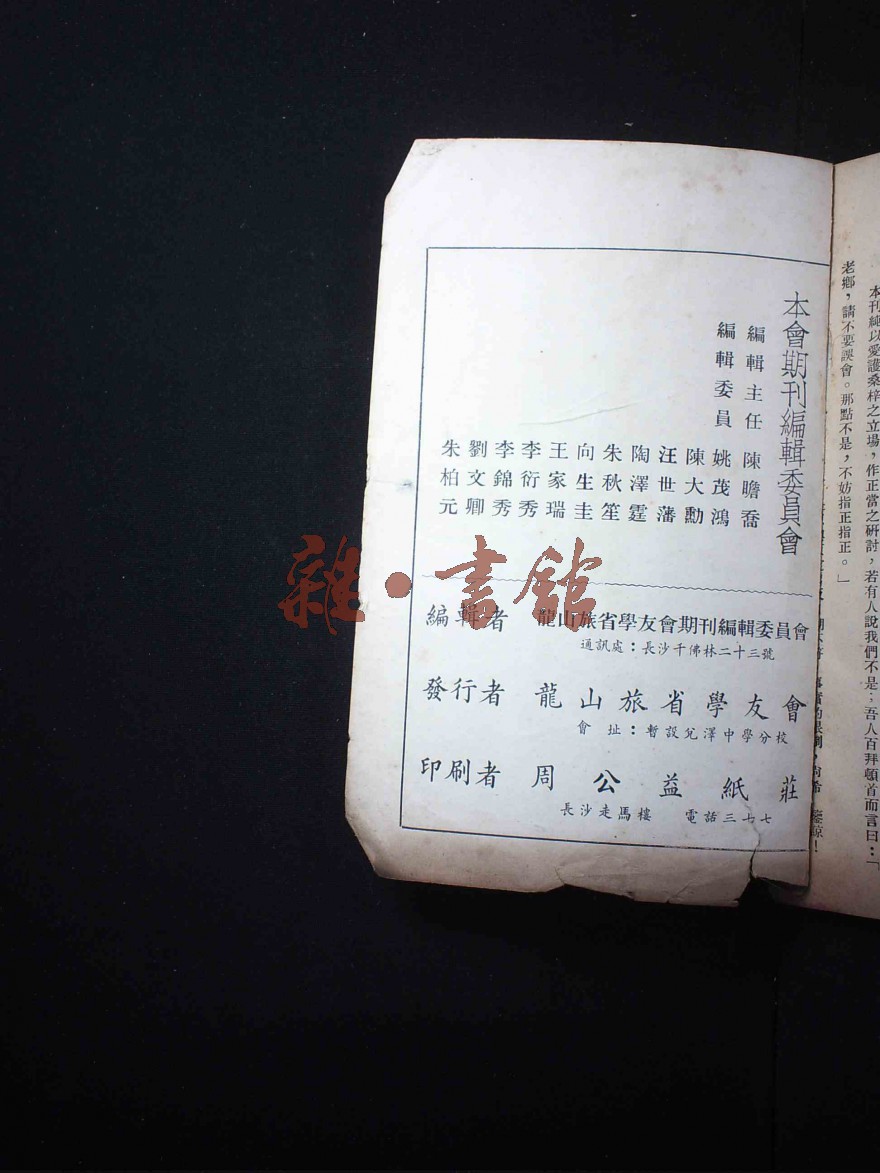 本刊純以愛護桑梓之立場，作正當之硏討，若有人說我們不是；吾人百拜頓首而言曰：「
老鄉，請不要誤會。那點不是，不妨指正指正。」
本會期刊編輯委員會
編輯主任　陳瞻喬
編輯委員　姚茂鴻
陳大勳
汪世藩
陶澤霆
朱秋笙
向生圭
王家瑞
李衍秀
李錦秀
劉文卿
朱柏元
編輯者　龍山旅省學友會期刊編輯委員會
通訊處：長沙千佛林二十三號
發行者　龍山旅省學友會
會址：暫設兌澤中學分校
印刷者　周公益紙莊
長沙走馬樓　電話三七七
雜·書館